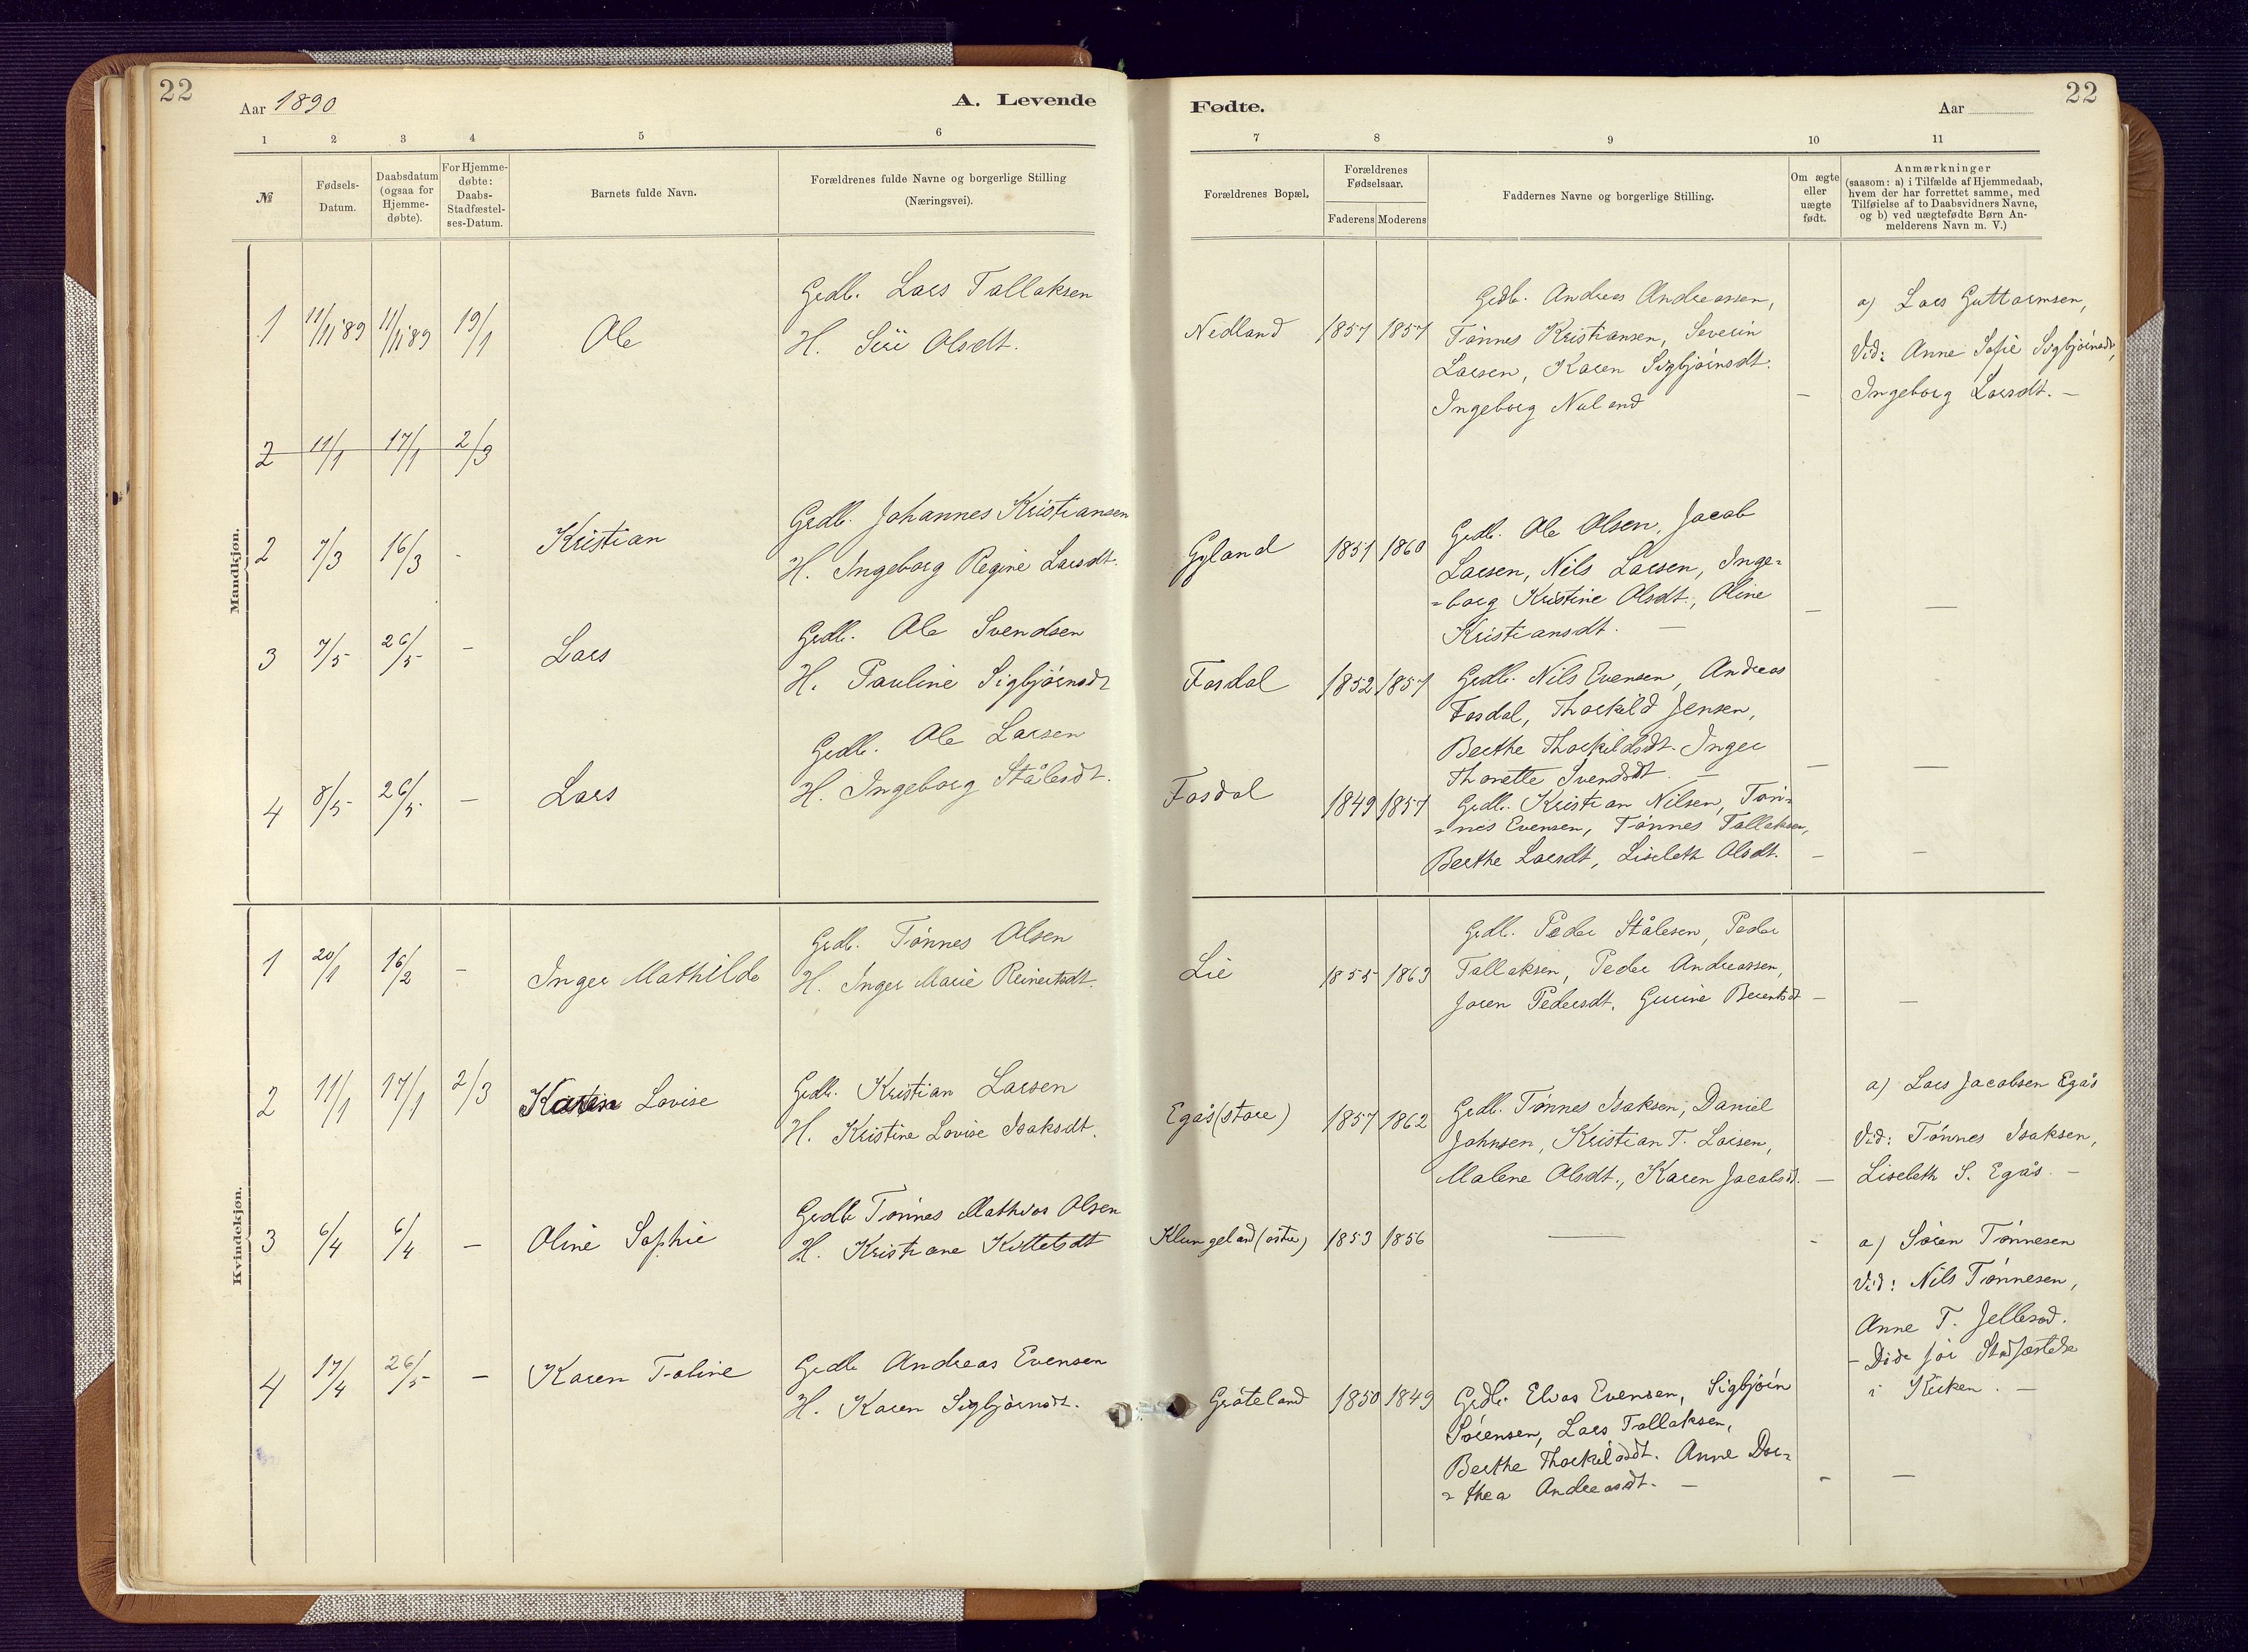 22
Aar 1890
A. Levende
1 2 3 4 5 6
№
Fødsels-
Datum.
Daabsdatum
(ogsaa for
Hjemme-
døbte).
For Hjemme-
døbte:
Daabs-
Stadfæstel-
ses-Datum.
Barnets fulde Navn.
Forældrenes fulde Navne og borgerlige Stilling
(Næringsvei).
Mandkjøn.
1 11/11 '89 11/11 '89 19/1 Ole
Grdb. Lars Tallaksen
H. Siri Olsdt.
2 11/1 17/1 2/3
2 7/3 16/3 - Kristian
Grdb. Johannes Kristiansen
H. Ingeborg Regine Larsdt.
3 7/5 26/5 - Lars
Grdb. Ole Svendsen
H. Pauline Sigbjørnsdt
4 8/5 26/5 - Lars
Grdb. Ole Larsen
H. Ingeborg Stålesdt.
Kvindekjøn.
1 20/1 16/2 - Inger Mathilde
Grdb. Tønnes Olsen
H. Inger Marie Reinertsdt.
2 11/1 17/1 2/3 Lovise
Grdb. Kristian Larsen
H. Kristine Lovise Isaksdt.
3 6/4 6/4 - Oline Sophie
Grdb Tønnes Mathias Olsen
H. Kristiane Kittelsdt
4 17/4 26/5 - Karen Taline
Grdb Andreas Evensen
H. Karen Sigbjørnsdt.
Fødte.
Aar
22
7 8 9 10 11
Forældrenes Bopæl.
Forældrenes
Fødselsaar.
Faderens Moderens
Faddernes Navne og borgerlige Stilling.
Om ægte
eller
uægte
født.
Anmærkninger
(saasom: a) i Tilfælde af Hjemmedaab,
hvem der har forrettet samme, med
Tilføielse af to Daabsvidners Navne,
og b) ved uægtefødte Børn An-
melderens Navn m. V.)
Nedland 1857 1857
Grdb. Andreas Andreassen,
Tønnes Kristiansen, Severin
Larsen, Karen Sigbjørnsdt.
Ingeborg Naland
-
a) Lars Guttormsen,
Vid: Anne Sofie Sigbjørnsdt,
Ingeborg Larsdt. -
Gyland 1851 1860
Grdb. Ole Olsen, Jacob
Larsen, Nils Larsen, Inge=
=borg Kristine Olsdt., Oline
Kristiansdt. -
- -
Fosdal 1852 1857
Grdb. Nils Evensen, Andreas
Fosdal, Thorkild Jensen,
Berthe Thorkildsdt. Inger
Thonette Svendsdt. -
- -
Fosdal 1849 1857
Grdb. Kristian Nilsen, Tøn=
=nes Evensen, Tønnes Tallaksen,
Berthe Larsdt, Lisebeth Olsdt.
- -
Lie 1855 1863
Grdb. Peder Stålesen, Peder
Tallaksen, Peder Andreassen,
Joren Pedersdt. Gurine Berentsdt
- -
Egås (store) 1857 1862
Grdb. Tønnes Isaksen, Daniel
Johnsen, Kristian T. Larsen,
Malene Olsdt., Karen Jacobsdt.
-
a) Lars Jacobsen Egås
Vid: Tønnes Isaksen,
Lisebeth S. Egås. -
Klungeland (østre) 1853 1856
- -
a) Søren Tønnesen
Vid: Nils Tønnesen,
Anne T. Jellesad.
- Døde før Stadfæstelse
i Kirken. -
Grøteland 1850 1849
Grdb. Elias Evensen, Sigbjørn
Sørensen, Lars Tallaksen,
Berthe Thorkildsdt. Anne Dor=
=thea Andreasdt. -
- -